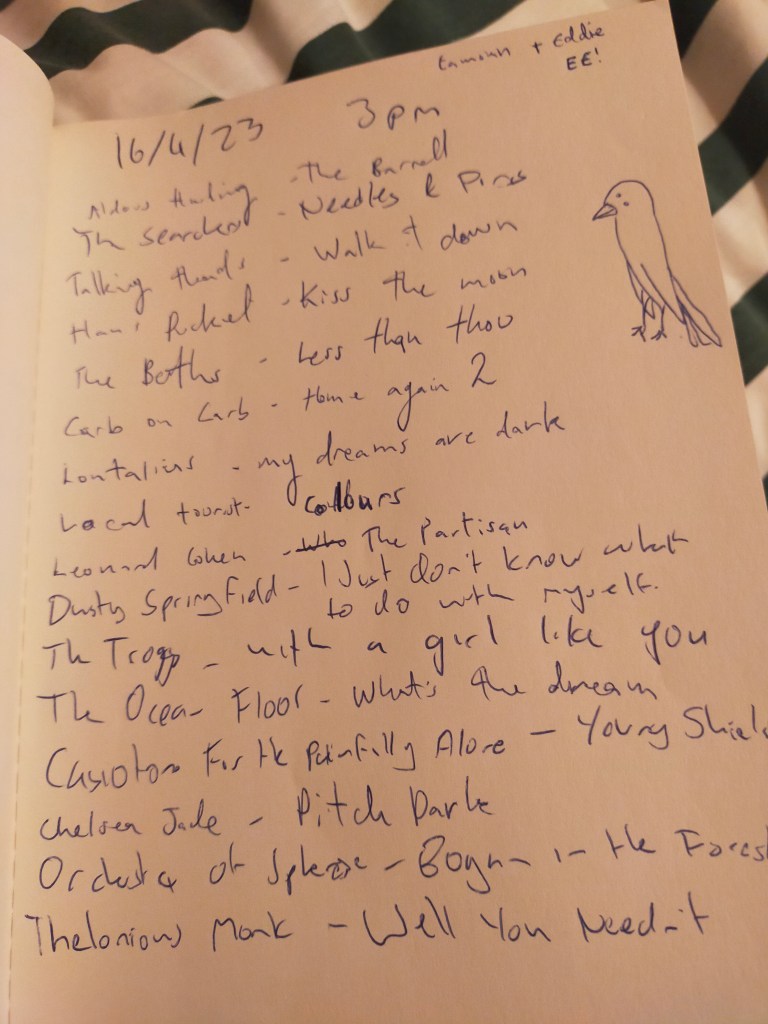 Eamonn + Eddie
EE!
16/4/23 3pm
Aldous Harding - The Barrel
The Searchers - Needles & Pins
Talking Heads - Walk it down
Hans Pucket - Kiss the moon
The Beths - Less than thou
Carb on Carb - Home again 2
Lontalius - my dreams are dark
Local tourist - Colours
Leonard Cohen - Who The Partisan
Dusty Springfield - I Just don't know what
to do with myself.
The Troggs - with a girl like you
The Ocean Floor - What's the dream
Casiotone For the Painfully Alone - Young Shiel
Chelsea Jade - Pitch Dark
Orchestra of Spheres - in the Fores
Thelonious Monk - Well You Needn't